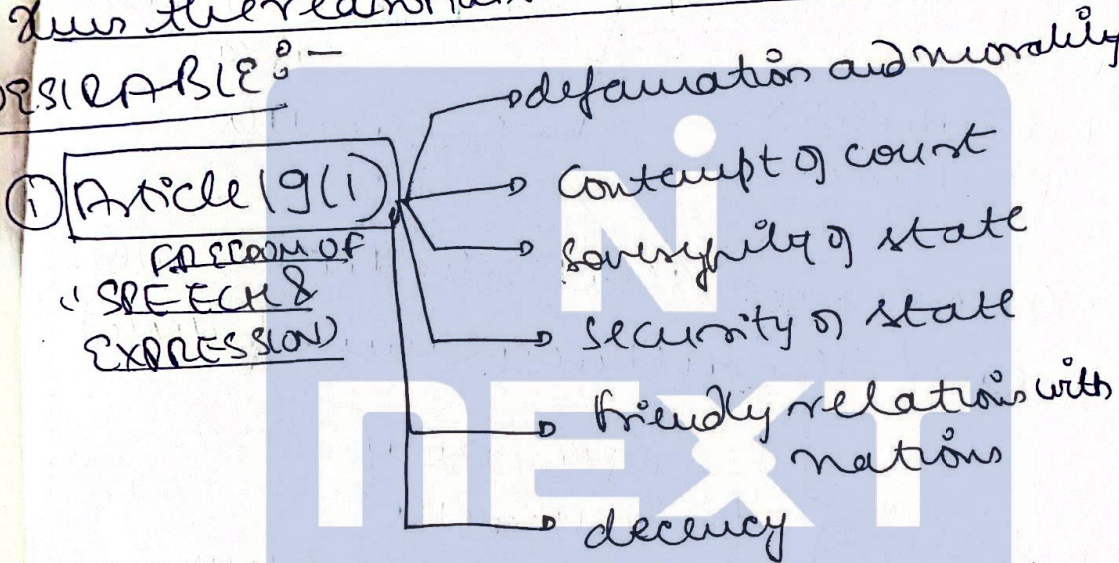 DESIRABLE :-
① Article 19(1)
FREEDOM OF
"SPEECH &
EXPRESSION)
defamation and morality
Contempt of court
Soverygnity of state
Security of state
friendly relations with
nations
decency
Ni
NEXT